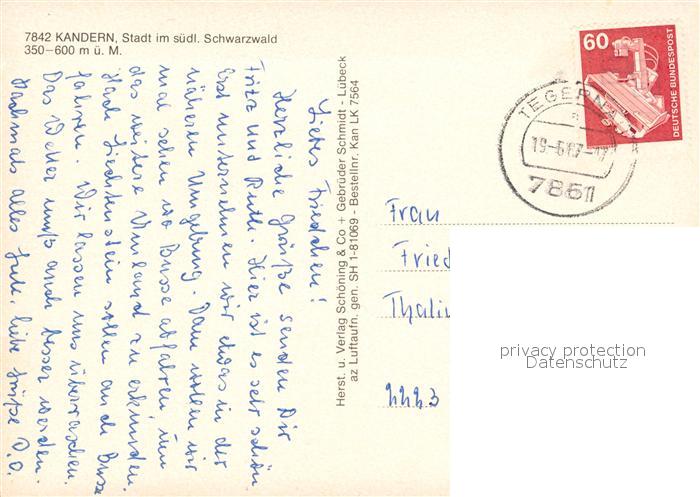 7842 KANDERN, Stadt im südl. Schwarzwald
350–600 m ü. M.
Liebes Friedchen!
Herzliche Grüße senden Dir
Fritz und Ruth. Hier ist es sehr schön.
Erst unternehmen wir etwas in der
näheren Umgebung. Dann wollen wir
mal sehen wo Busse abfahren um
das weitere Umland zu erkunden.
Nach Liechtenstein sollen auch Busse
fahren. Wir lassen uns überraschen.
Das Wetter muß auch besser werden.
Nochmals alles Gute, liebe Grüße D.O.
Herst. u. Verlag Schöning & Co + Gebrüder Schmidt - Lübeck
az Luftaufn. gen. SH 1-81069 - Bestellnr. Kan LK 7564
60
DEUTSCHE BUNDESPOST
7861
Frau
Fried
2223
privacy protection
Datenschutz